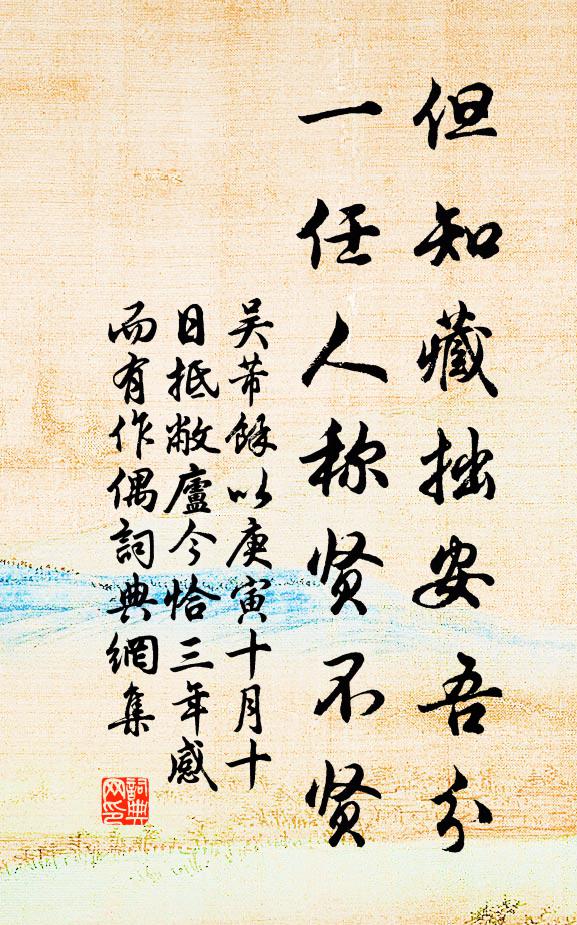 但知藏拙安吾分
一任人称贤不贤
吴芾餘以庚寅十月十
日抵敝廬今恰三年感
而有作偶詞典網集
詞典
网印